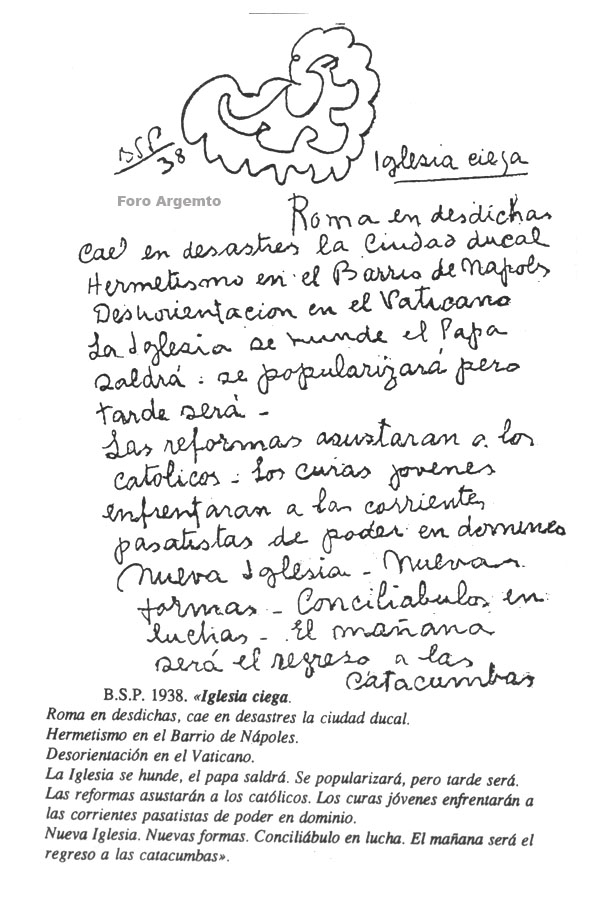 B.S.P.
38
Iglesia ciega
Foro Argemto
Roma en desdichas
Cae en desastres la Ciudad ducal
Hermetismo en el Barrio de Napoles
Deshorientacion en el Vaticano
La Iglesia se hunde el Papa
saldrá : se popularizará pero
tarde será -
Las reformas asustaran a los
catolicos - Los curas jovenes
enfrentaran a las corrientes
pasatistas de poder en domines
Nueva Iglesia - Nuevas
formas - Conciliabulos en
luchas - El mañana
será el regreso a las
catacumbas
B.S.P. 1938. «Iglesia ciega.
Roma en desdichas, cae en desastres la ciudad ducal.
Hermetismo en el Barrio de Nápoles.
Desorientación en el Vaticano.
La Iglesia se hunde, el papa saldrá. Se popularizará, pero tarde será.
Las reformas asustarán a los católicos. Los curas jóvenes enfrentarán a
las corrientes pasatistas de poder en dominio.
Nueva Iglesia. Nuevas formas. Conciliábulo en lucha. El mañana será el
regreso a las catacumbas».